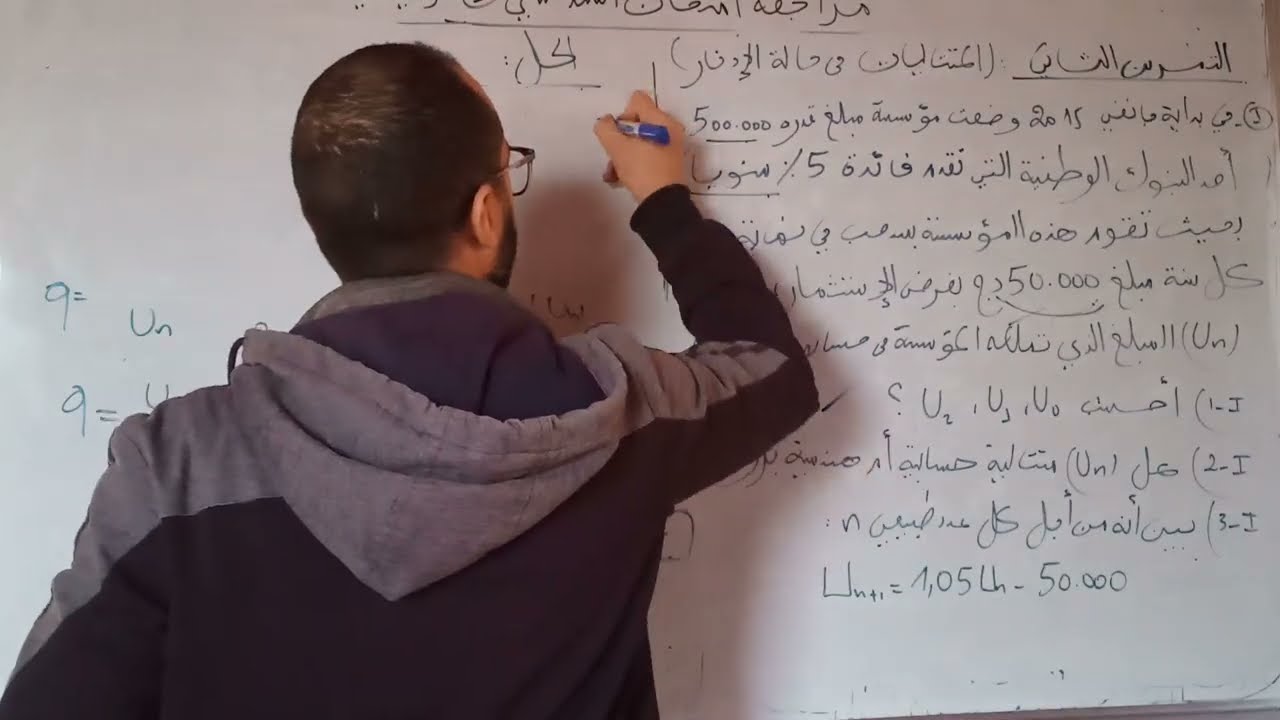 مراجعة
التمرين الثاني: (المتتاليات في حالة الإدخار)
الحل:
I- في بداية جانفي 2015 وضعت مؤسسة مبلغ قدره 500.000
أحد البنوك الوطنية التي تقدم فائدة 5% سنويا
بحيث تقوم هذه المؤسسة بسحب في نهاية
كل سنة مبلغ 50.000 دج بغرض الإستثمار
(Un) المبلغ الذي تملكه المؤسسة في
I-1) أحسب U₀، U₁، U₂ ؟
I-2) هل (Un) متتالية حسابية أم هندسية
I-3) بين أنه من أجل كل عدد طبيعي n :
Un+1 = 1,05Un - 50.000
q=
Un
q=
Un